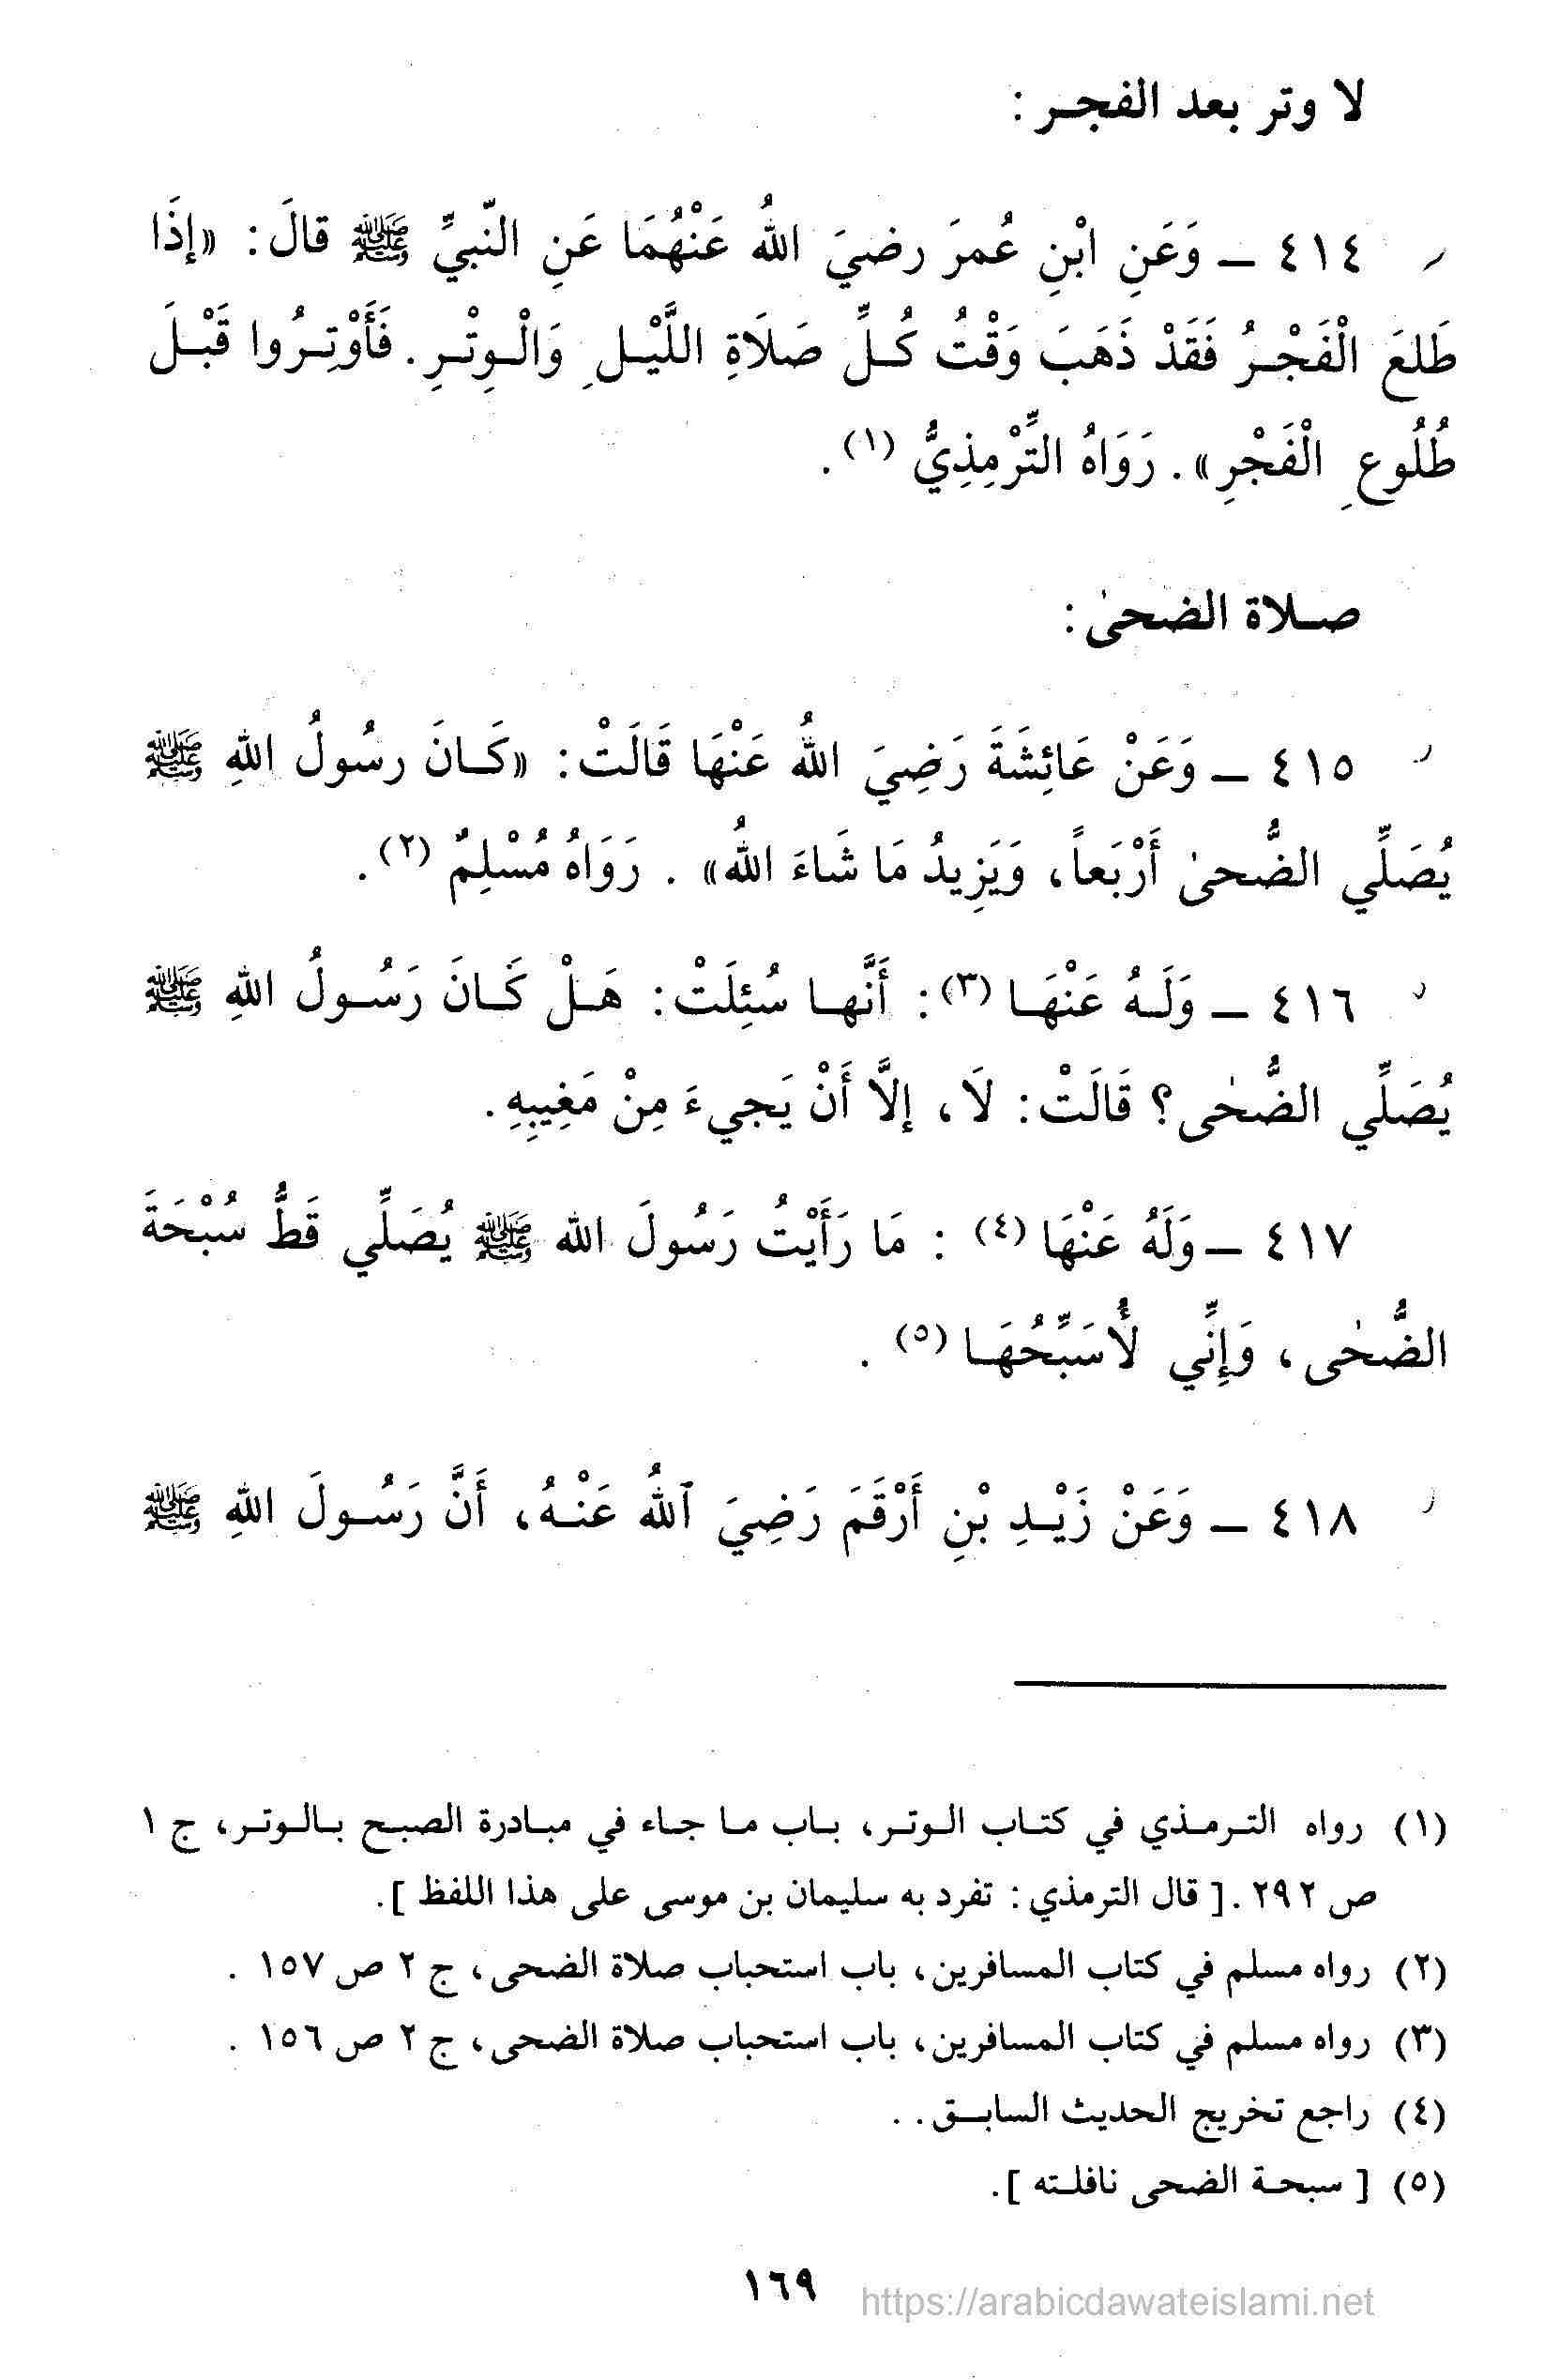 لا وتر بعد الفجـر :
٤١٤ ـ وَعَنِ ابْنِ عُمرَ رضيَ اللهُ عَنْهُمَا عَنِ النّبيِّ ﷺ قالَ: «إذَا
طَلعَ الْفَجْـرُ فَقَدْ ذَهَبَ وَقْتُ كُـلِّ صَلَاةِ اللَّيْـلِ وَالْـوِتْـرِ. فَأَوْتِـرُوا قَبْـلَ
طُلُوعِ الْفَجْرِ». رَوَاهُ التِّرْمِذِيُّ (١).
صـلاة الضحىٰ:
٤١٥ ـ وَعَنْ عَائِشَةَ رَضِيَ اللهُ عَنْهَا قَالَتْ: «كَـانَ رسُولُ اللهِ ﷺ
يُصَلِّي الضُّحىٰ أَرْبَعاً، وَيَزِيدُ مَا شَاءَ اللهُ» . رَوَاهُ مُسْلِمٌ (٢).
٤١٦ ـ وَلَـهُ عَنْهَـا (٣): أَنَّهـا سُئِلَتْ: هَـلْ كَـانَ رَسُـولُ اللهِ ﷺ
يُصَلِّي الضُّحٰى؟ قَالَتْ: لَا، إلَّا أَنْ يَجيءَ مِنْ مَغِيبِهِ.
٤١٧ ـ وَلَهُ عَنْهَا (٤) : مَا رَأَيْتُ رَسُولَ الله ﷺ يُصَلِّي قَطُّ سُبْحَةَ
الضُّحٰى، وَإِنِّي لأُسَبِّحُهَـا (٥) .
٤١٨ ـ وَعَنْ زَيْـدِ بْنِ أَرْقَمَ رَضِيَ ٱللهُ عَنْـهُ، أَنَّ رَسُـولَ اللهِ ﷺ
(١) رواه التـرمـذي في كتـاب الـوتـر، بـاب مـا جـاء في مبـادرة الصبـح بـالـوتـر، ج ١
ص ٢٩٢ .[ قال الترمذي : تفرد به سليمان بن موسى على هذا اللفظ ].
(٢) رواه مسلم في كتاب المسافرين، باب استحباب صلاة الضحى، ج ٢ ص ١٥٧ .
(٣) رواه مسلم في كتاب المسافرين، باب استحباب صلاة الضحى، ج ٢ ص ١٥٦ .
(٤) راجع تخريج الحديث السابـق . .
(٥) [ سبحـة الضحى نافلـته ].
١٦٩
https://arabicdawateislami.net